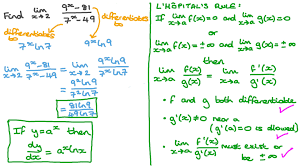 Find lim x→2 (9ˣ - 81)/(7ˣ - 49)
differentiates to
differentiates to
7ˣ ln7
9ˣ ln9
lim x→2 (9ˣ - 81)/(7ˣ - 49) = lim x→2 (9ˣ ln9)/(7ˣ ln7)
= (9² ln9)/(7² ln7)
= (81 ln9)/(49 ln7)
If y = aˣ then
dy/dx = aˣ ln a
L'HÔPITAL'S RULE:
If lim x→a f(x) = 0 and lim x→a g(x) = 0
or
lim x→a f(x) = ±∞ and lim x→a g(x) = ±∞
then
lim x→a f(x)/g(x) = lim x→a f'(x)/g'(x)
• f and g both differentiable ✓
• g'(x) ≠ 0 near a
(g'(a) = 0 is allowed) ✓
• lim x→a f'(x)/g'(x) must exist or
be ±∞ ✓